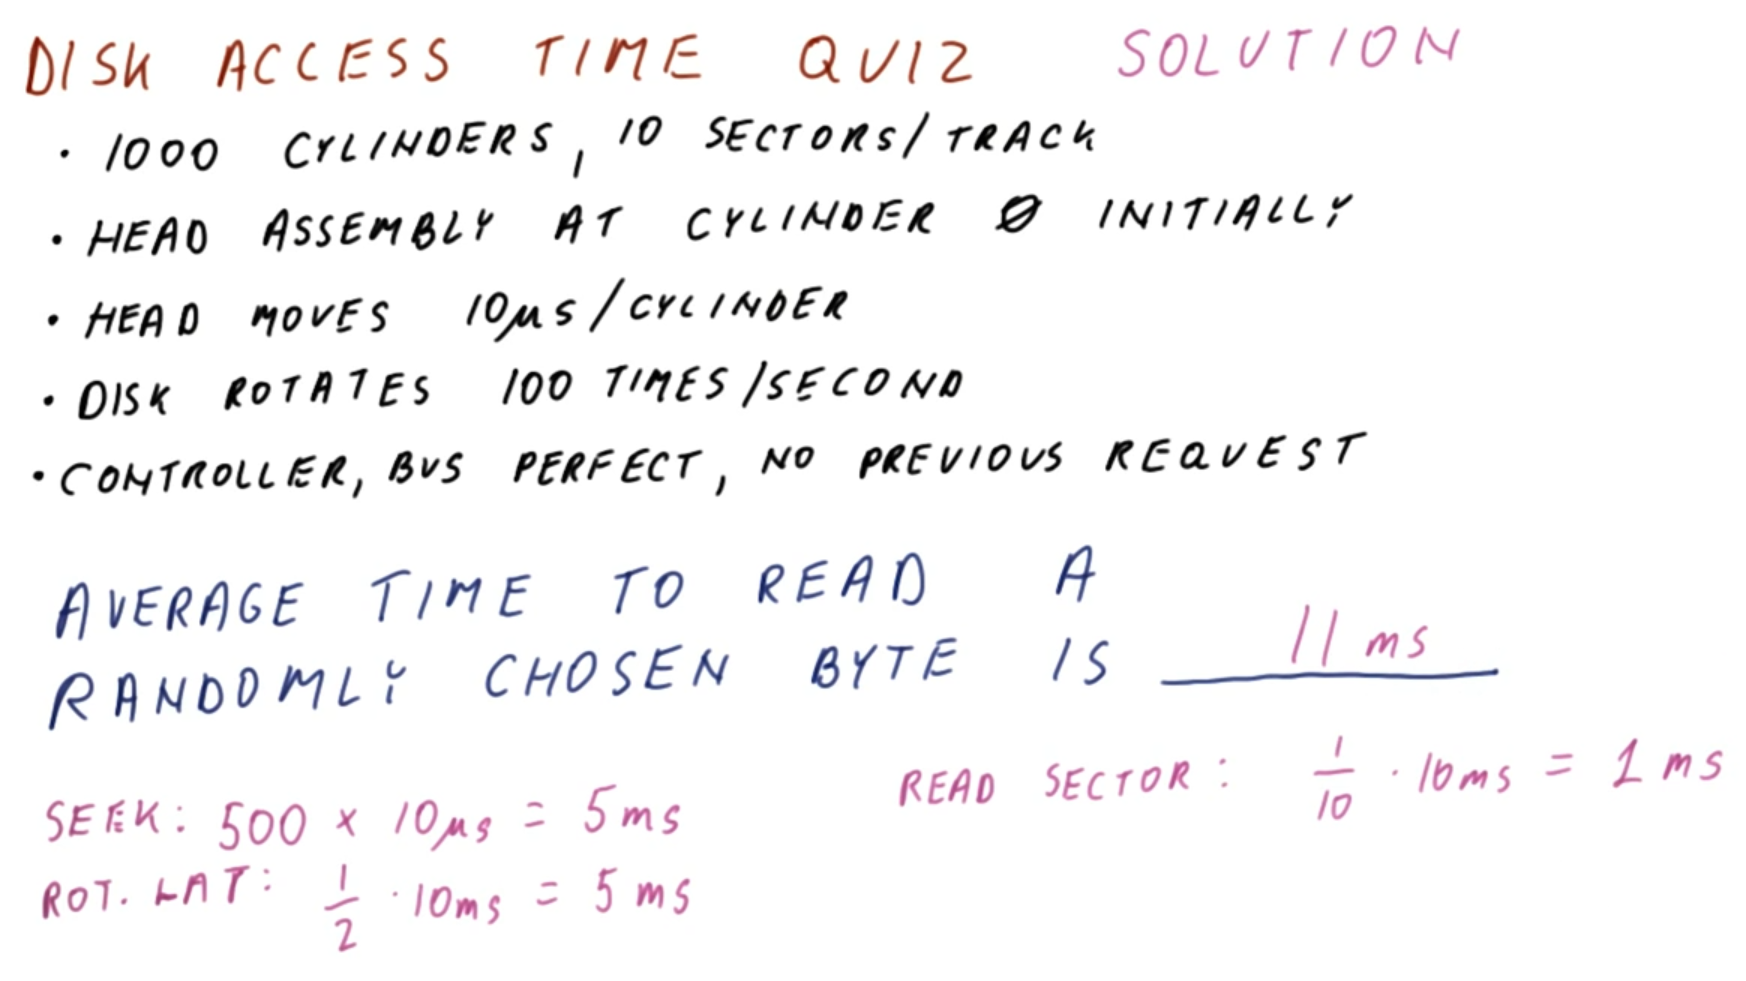 DISK ACCESS TIME QUIZ SOLUTION
• 1000 CYLINDERS, 10 SECTORS/TRACK
• HEAD ASSEMBLY AT CYLINDER Ø INITIALLY
• HEAD MOVES 10μs/CYLINDER
• DISK ROTATES 100 TIMES/SECOND
• CONTROLLER, BUS PERFECT, NO PREVIOUS REQUEST
AVERAGE TIME TO READ A
RANDOMLY CHOSEN BYTE IS 11 ms
READ SECTOR: 1/10 · 10ms = 1 ms
SEEK: 500 × 10μs = 5ms
ROT. LAT: 1/2 · 10ms = 5 ms